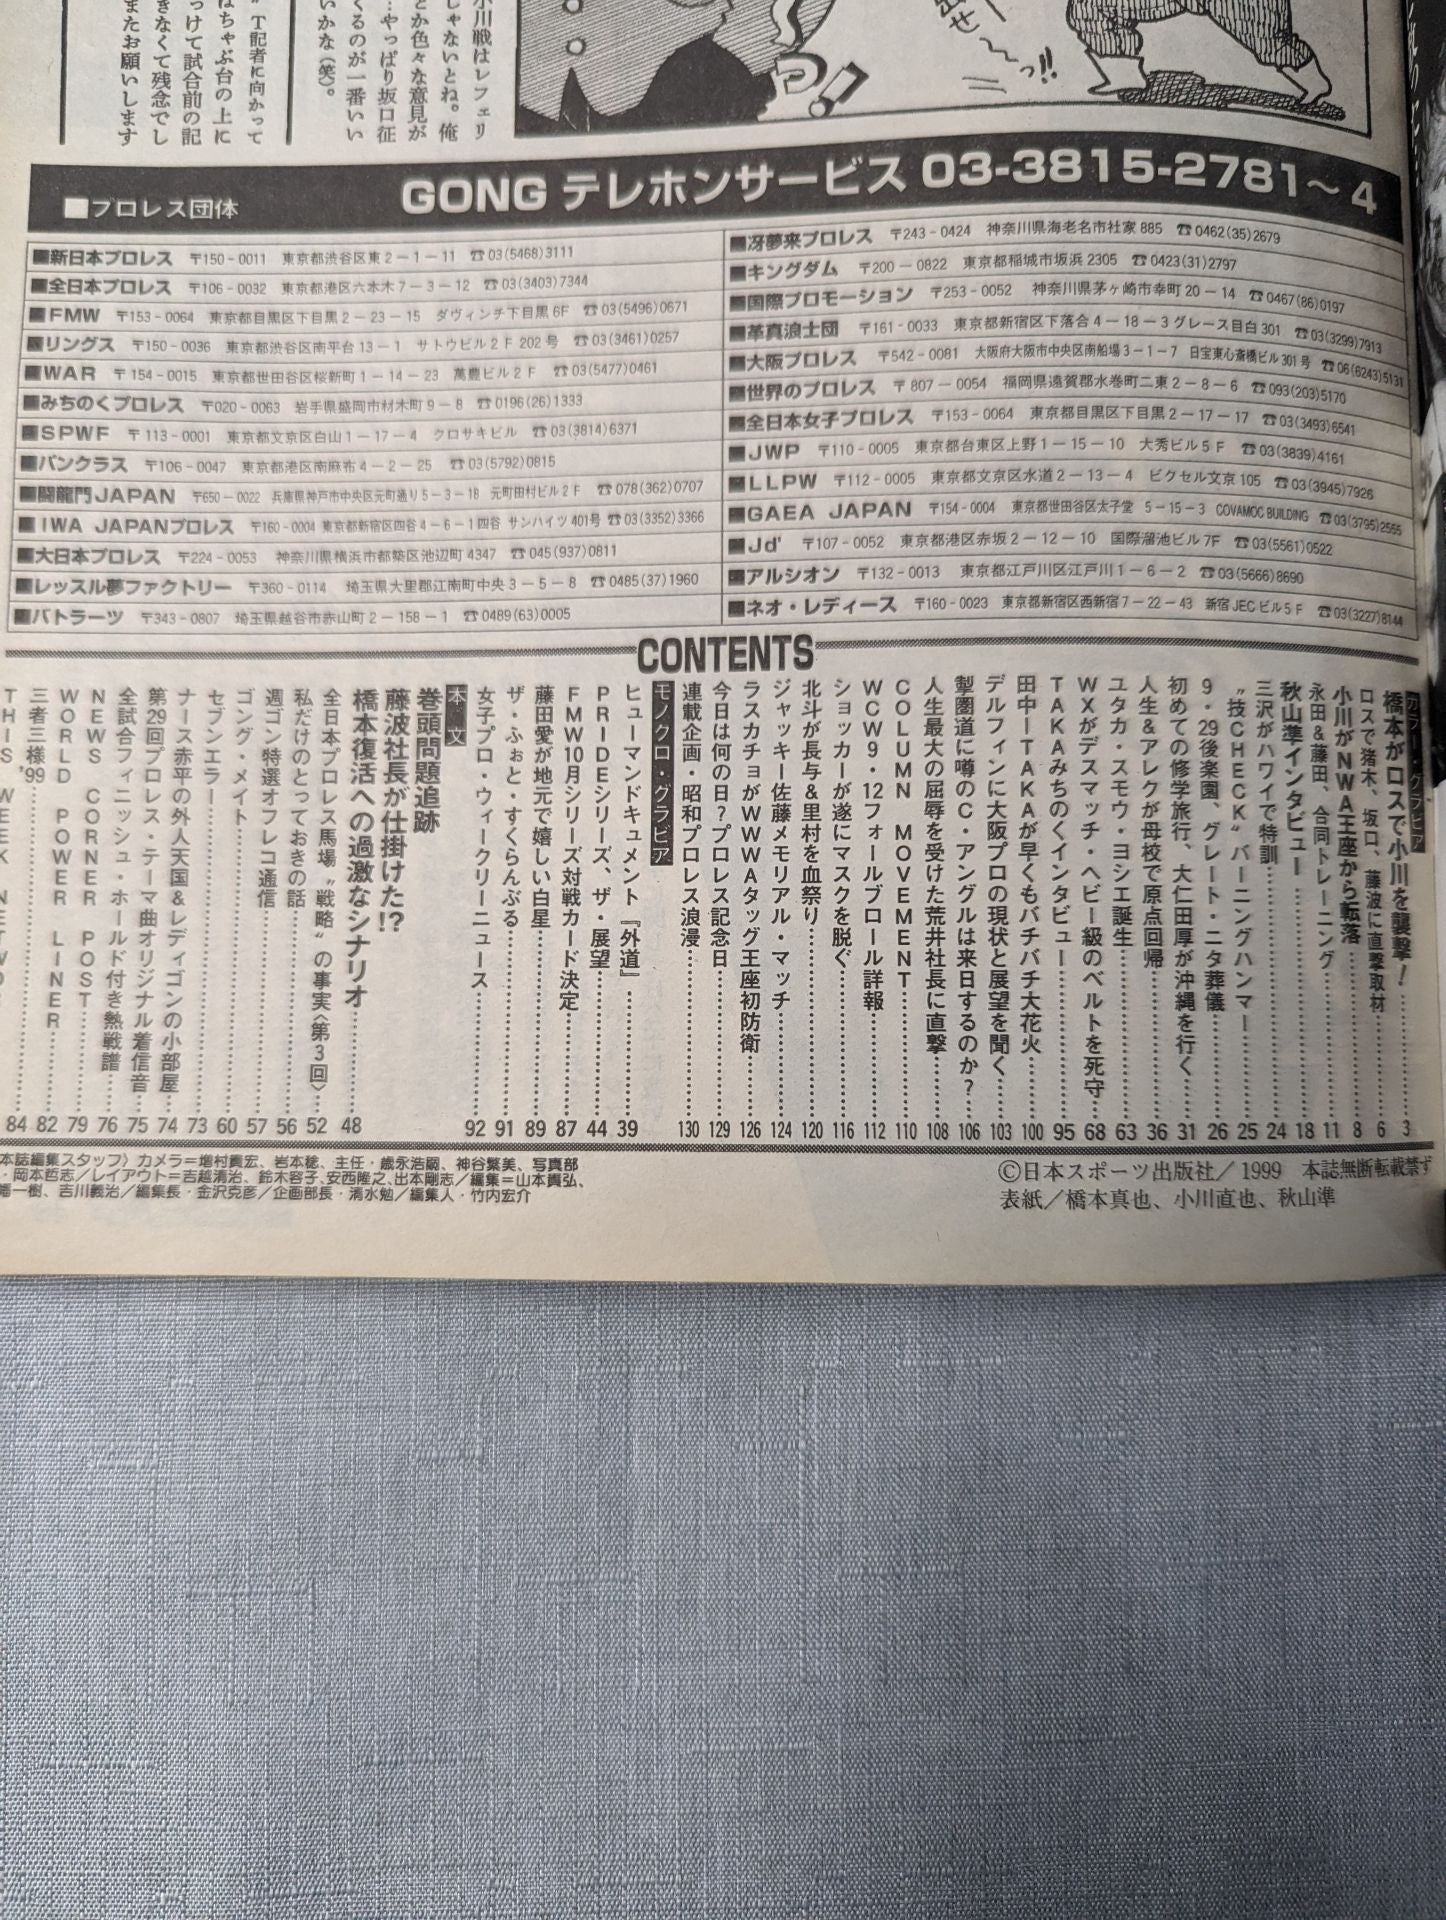 小川戦はレフェリ
しゃないとね。俺
とか色々な意見が
…やっぱり坂口征
くるのが一番いい
いかな（笑）。
"T記者に向かって
はちゃぶ台の上に
っけて試合前の記
きなくて残念でし
またお願いします
出せ〜〜っ!!
っ！
■プロレス団体
GONG テレホンサービス 03-3815-2781〜4
■新日本プロレス 〒150-0011 東京都渋谷区東2-1-11 ☎03(5468)3111
■全日本プロレス 〒106-0032 東京都港区六本木7-3-12 ☎03(3403)7344
■FMW 〒153-0064 東京都目黒区下目黒2-23-15 ダヴィンチ下目黒6F ☎03(5496)0671
■リングス 〒150-0036 東京都渋谷区南平台13-1 サトウビル2F 202号 ☎03(3461)0257
■WAR 〒154-0015 東京都世田谷区桜新町1-14-23 萬豊ビル2F ☎03(5477)0461
■みちのくプロレス 〒020-0063 岩手県盛岡市材木町9-8 ☎0196(26)1333
■SPWF 〒113-0001 東京都文京区白山1-17-4 クロサキビル ☎03(3814)6371
■パンクラス 〒106-0047 東京都港区南麻布4-2-25 ☎03(5792)0815
■闘龍門JAPAN 〒650-0022 兵庫県神戸市中央区元町通り5-3-18 元町田村ビル2F ☎078(362)0707
■IWA JAPANプロレス 〒160-0004 東京都新宿区四谷4-6-1四谷 サンハイツ401号 ☎03(3352)3366
■大日本プロレス 〒224-0053 神奈川県横浜市都築区池辺町4347 ☎045(937)0811
■レッスル夢ファクトリー 〒360-0114 埼玉県大里郡江南町中央3-5-8 ☎0485(37)1960
■バトラーツ 〒343-0807 埼玉県越谷市赤山町2-158-1 ☎0489(63)0005
■冴夢来プロレス 〒243-0424 神奈川県海老名市社家885 ☎0462(35)2679
■キングダム 〒200-0822 東京都稲城市坂浜2305 ☎0423(31)2797
■国際プロモーション 〒253-0052 神奈川県茅ヶ崎市幸町20-14 ☎0467(86)0197
■革真浪士団 〒161-0033 東京都新宿区下落合4-18-3グレース目白301 ☎03(3299)7913
■大阪プロレス 〒542-0081 大阪府大阪市中央区南船場3-1-7 日宝東心斎橋ビル301号 ☎06(6243)5131
■世界のプロレス 〒807-0054 福岡県遠賀郡水巻町二東2-8-6 ☎093(203)5170
■全日本女子プロレス 〒153-0064 東京都目黒区下目黒2-17-17 ☎03(3493)6541
■JWP 〒110-0005 東京都台東区上野1-15-10 大秀ビル5F ☎03(3839)4161
■LLPW 〒112-0005 東京都文京区水道2-13-4 ビクセル文京105 ☎03(3945)7926
■GAEA JAPAN 〒154-0004 東京都世田谷区太子堂 5-15-3 COVAMOC BUILDING ☎03(3795)2565
■Jd' 〒107-0052 東京都港区赤坂2-12-10 国際溜池ビル7F ☎03(5561)0522
■アルシオン 〒132-0013 東京都江戸川区江戸川1-6-2 ☎03(5666)8690
■ネオ・レディース 〒160-0023 東京都新宿区西新宿7-22-43 新宿JECビル5F ☎03(3227)8144
CONTENTS
カラー・グラビア
橋本がロスで小川を襲撃！……3
ロスで猪木、坂口、藤波に直撃取材……6
小川がNWA王座から転落……8
永田＆藤田、合同トレーニング……11
秋山準インタビュー……18
三沢がハワイで特訓……24
"技CHECK"バーニングハンマー……25
9・29後楽園、グレート・ニタ葬儀……26
初めての修学旅行、大仁田厚が沖縄を行く……31
人生＆アレクが母校で原点回帰……36
ユタカ・スモウ・ヨシエ誕生……63
WXがデスマッチ・ヘビー級のベルトを死守……68
TAKAみちのくインタビュー……95
田中ーTAKAが早くもバチバチ大花火……100
デルフィンに大阪プロの現状と展望を聞く……103
掣圏道に噂のC・アングルは来日するのか？……106
人生最大の屈辱を受けた荒井社長に直撃……108
COLUMN MOVEMENT……110
WCW9・12フォールブロール詳報……112
ショッカーが遂にマスクを脱ぐ……116
北斗が長与＆里村を血祭り……120
ジャッキー佐藤メモリアル・マッチ……124
ラスカチョがWWWAタッグ王座初防衛……126
今日は何の日？プロレス記念日……129
連載企画・昭和プロレス浪漫……130
モノクロ・グラビア
ヒューマンドキュメント『外道』……39
PRIDEシリーズ、ザ・展望……44
FMW10月シリーズ対戦カード決定……87
藤田愛が地元で嬉しい白星……89
ザ・ふぉと・すくらんぶる……91
女子プロ・ウィークリーニュース……92
本文
巻頭問題追跡
藤波社長が仕掛けた!?
橋本復活への過激なシナリオ……48
全日本プロレス馬場"戦略"の事実〈第3回〉……52
私だけのとっておきの話……56
週ゴン特選オフレコ通信……57
ゴング・メイト……60
セブンエラー……73
ナース赤平の外人天国＆レディゴンの小部屋……74
第29回プロレス・テーマ曲オリジナル着信音……75
全試合フィニッシュ・ホールド付き熱戦譜……76
NEWS CORNER POST……79
WORLD POWER LINER……82
三者三様'99……84
THIS WEEK NETWO
本誌編集スタッフ〉カメラ＝増村貴宏、岩本稔、主任・歳永浩嗣、神谷繁美、写真部
・岡本哲志／レイアウト＝吉越清治、鈴木容子、安西隆之、出本剛志／編集＝山本貴弘、
幡一樹、吉川義治／編集長・金沢克彦／企画部長・清水勉／編集人・竹内宏介
©日本スポーツ出版社／1999 本誌無断転載禁ず
表紙／橋本真也、小川直也、秋山準